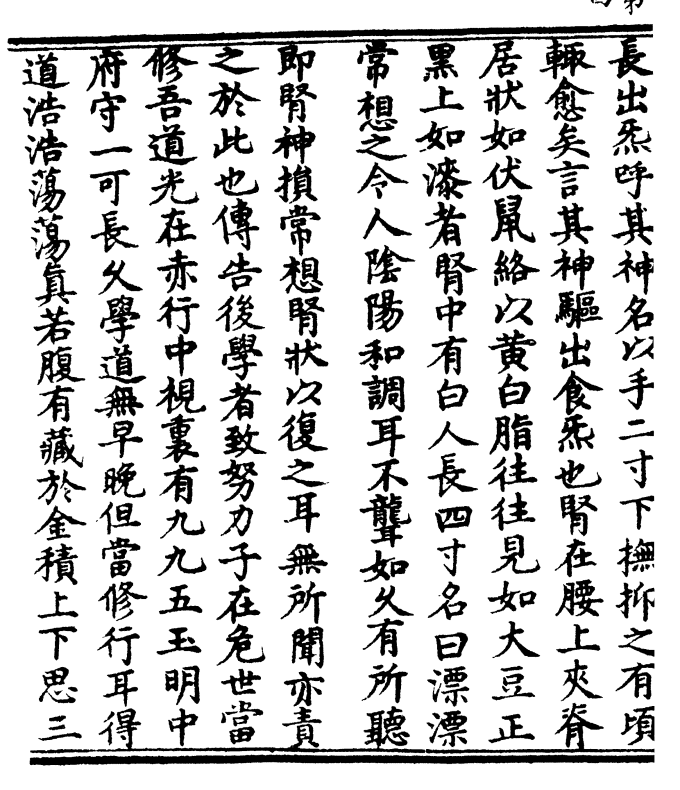 長出炁呼其神名以手二寸下撫抑之有頃
輙愈矣言其神驅出食炁也腎在腰上夾脊
居狀如伏鼠絡以黄白脂往往見如大豆正
黒上如漆者腎中有白人長四寸名曰漂漂
常想之令人陰陽和調耳不聾如久有所聽
即腎神損常想腎狀以復之耳無所聞亦責
之於此也傳告後學者致努力子在危世當
修吾道光在赤行中視裏有九九五玉明中
府守一可長久學道無早晚但當修行耳得
道浩浩蕩蕩真若腹有藏於金積上下思三